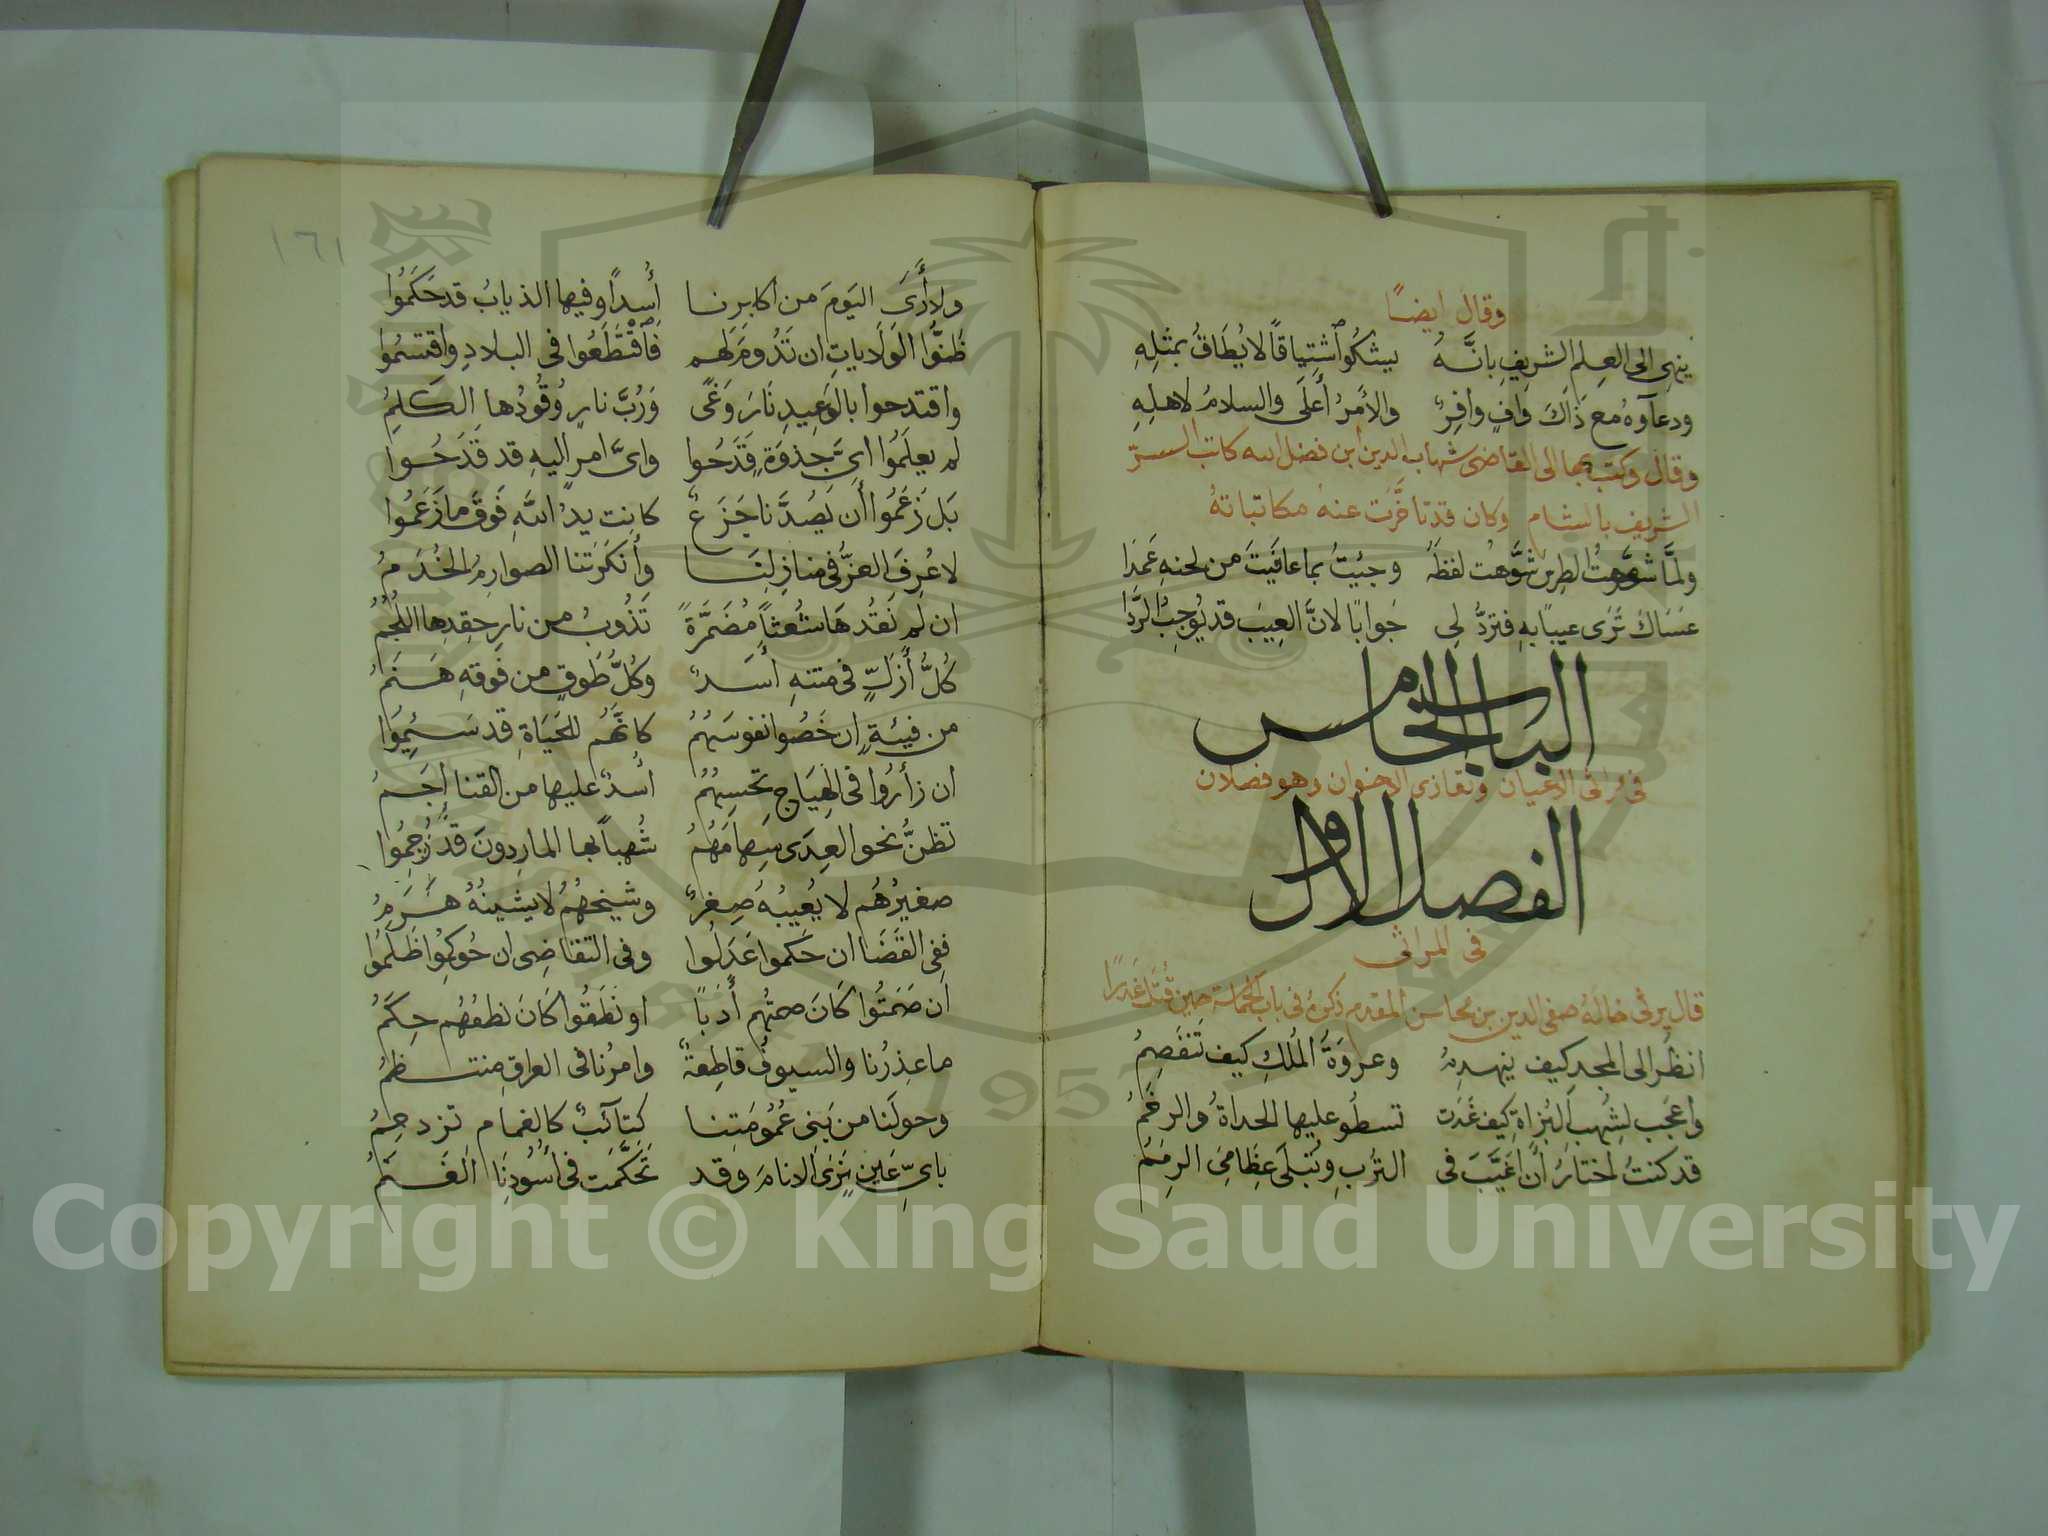 وقال ايضًا
ينهى الى العِلم الشريفِ بانَّهُ يشكُو اشتِياقًا لا يُطَاقُ بمثلِهِ
ودعآوهُ مع ذَاكَ وَافٍ وافِرٌ والأمرُ أعلَى والسلامُ لاهلِهِ
وقال وكتب بها الى القاضى شهاب الدين ابن فضل الله كاتب السرّ
الشريف بالشام وكان قد تاخَّرت عنه مكاتباتهُ
ولمَّا شوَّهتُ لفظَهُ وجئيتُ بما عافَيتَ من لحنهِ عَمدَا
عَسَاكَ تَرَى عيبًا بهِ فتردُّ لِى جَوابًا لانَّ العيبَ قد يُوجِبُ الرَدَّا
الباب الخامس
فى مراثى الاعيان وتعازى الاخوان وهو فصلان
الفصل الاول
فى المراثى
قال يرثى خالَهُ صفى الدين بن محاسن المقدم ذكرهُ فى باب الحماسة حين قُتلَ غدرًا
انظُر الى المجدِ كيف ينهدِمُ وعروَةُ المُلكِ كيف تَنفَصِمُ
واعجَب لِشُهبِ البُزاةِ كيف غَدَت تسطُو عليها الحداةُ والرخمُ
قد كنتُ اختارُ أن اُغَيَّبَ فى التربِ وتبلَى عِظَامِىَ الرِمَمُ
١٦١
ولا أَرَى اليَومَ من اكابرنا أُسدًا وفيها الذيابُ قد حَكَمُوا
ظَنُّوا الوَلَاياتِ ان تَدُومَ لهم فَاقتَطَعُوا فى البلادِ واقتسَمُوا
واقتدحوا بالوَعِيدِ نَارَ وَغًى وَرُبَّ نارٍ وُقُودُها الكَلِمُ
لم يعلَمُوا اىَّ جِذوَةٍ قَدَحُوا واىَّ امرٍ اليهِ قد قَدَحُوا
بَل زَعَمُوا أَن يَصُدَّنا جَزَعٌ كانت يدُ اللهِ فَوقَ ما زَعَمُوا
لا عُرِفَ العزُّ فى منازِلِنَا وأنكَرَتنا الصوارِمُ الخُدَمُ
ان لَم نَقُدهَا شُعثًا مُضَمَّرَةً تَذُوبُ من نارِ حِقدِها اللُّجُمُ
كُلُّ أَزَلٍّ فى متنهِ أَسَدٌ وكُلُّ طَوقٍ من فَوقهِ هَنَمُ
من فيئةٍ ان خَصُوا نفوسَهُمُ كانَّهُم للحَيَاةِ قد سَئِمُوا
ان زأَرُوا فى الهِيَاجِ تحسِبُهُمُ اُسدٌ عليها من القنا اَجَمُ
تظنُّ نحو العِدَى سِهامَهُمُ شُهبًا بها المارِدونَ قَد رُجِمُوا
صغيرُهُم لا يُعيبُهُ صِغرٌ وشيخُهُمُ لا يشينُهُ هَرَمُ
ففى القَضَا ان حَكموا عَدَلُوا وفى التقاضِى ان حُوكِمُوا ظَلَمُوا
ان صَمَتُوا كَانَ صمتُهم أَدَبًا او نَطَقُوا كَانَ نطقُهُم حِكَمُ
ما عِذرُنا والسيوفُ قاطِعةٌ وامرُنا فى العراقِ منتظمُ
وحولَنا من بَنى عُمُومَتِنا كتآئبٌ كالغمام تزدحِمُ
باىِّ عَينٍ نَرَى الانامَ وقد تَحَكَّمَت فى اُسُودِنَا الغَنَمُ
Copyright © King Saud University
1957